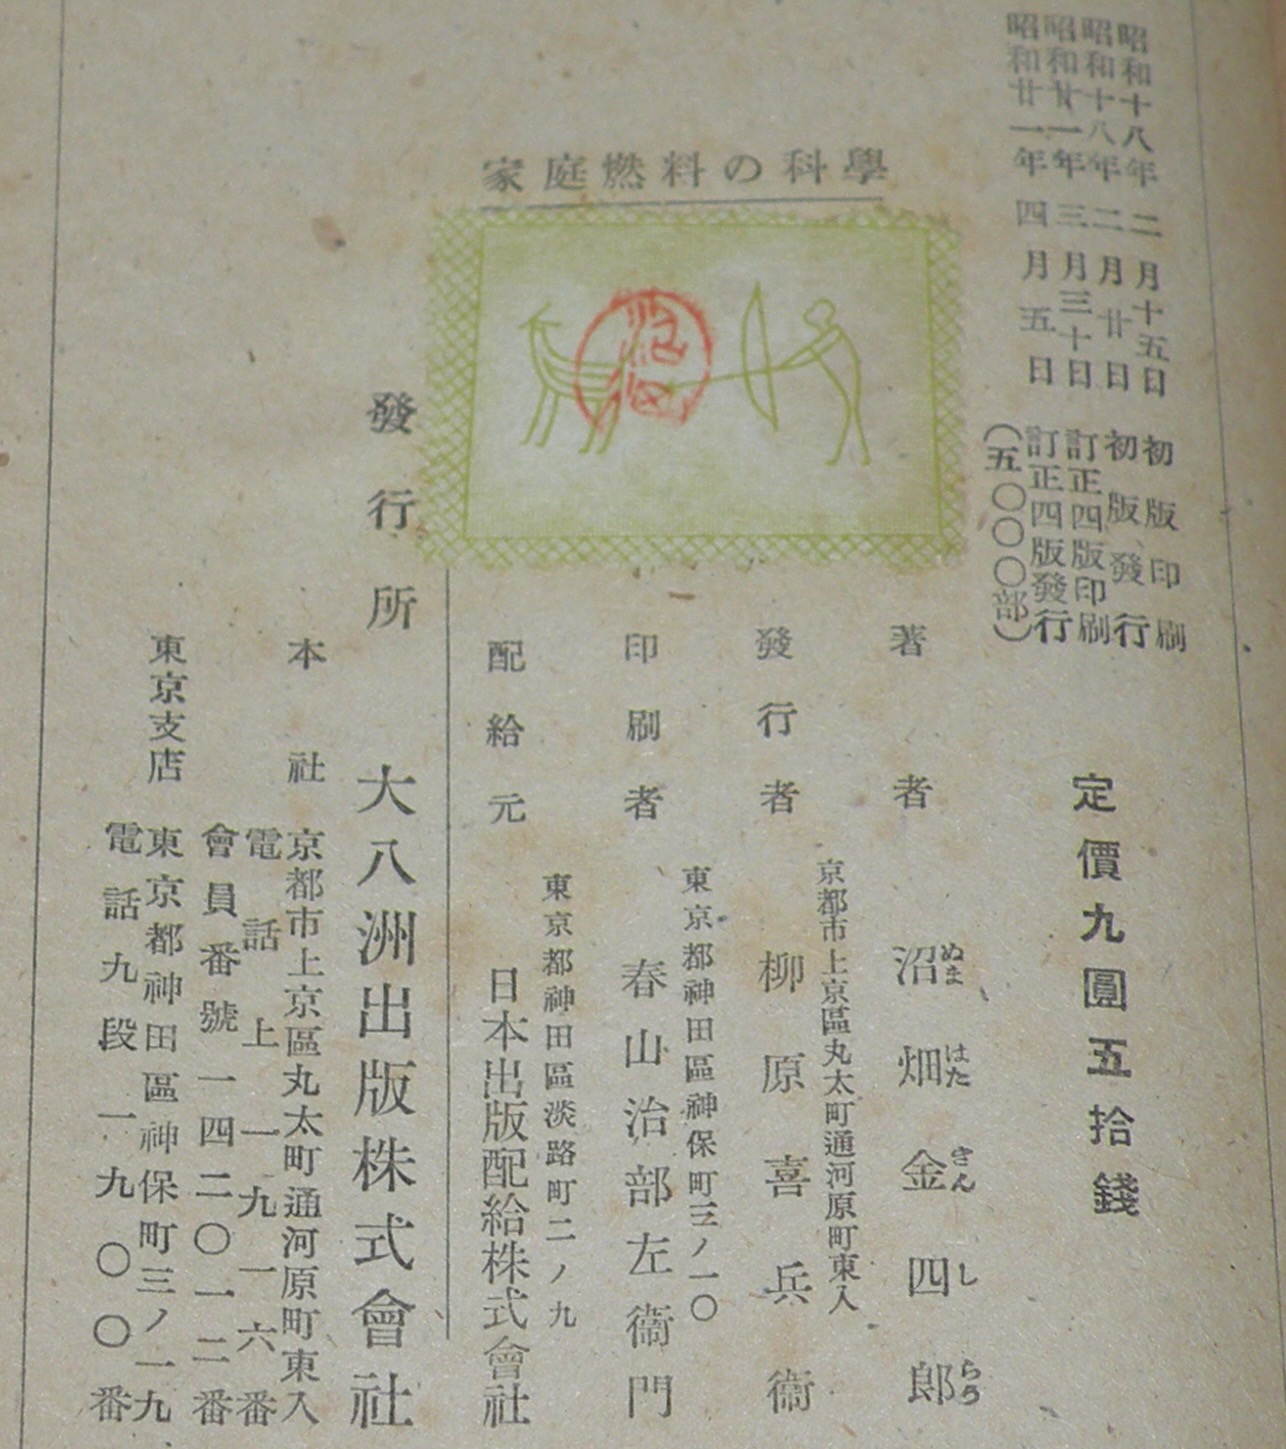 家庭燃料の科學
昭和十八年二月十五日 初版印刷
昭和十八年二月廿日 初版發行
昭和廿一年三月三十日 訂正四版印刷
昭和廿一年四月五日 訂正四版發行
(五〇〇〇部)
定價九圓五拾錢
著者 沼畑金四郎
ぬま はた きん し らう
京都市上京區丸太町通河原町東入
發行者 柳原喜兵衞
東京都神田區神保町三ノ一〇
印刷者 春山治部左衞門
東京都神田區淡路町二ノ九
配給元 日本出版配給株式會社
發行所 大八洲出版株式會社
本社 京都市上京區丸太町通河原町東入
電話上一九一六番
會員番號一四二〇一二番
東京支店 東京都神田區神保町三ノ一九
電話九段一九〇〇番